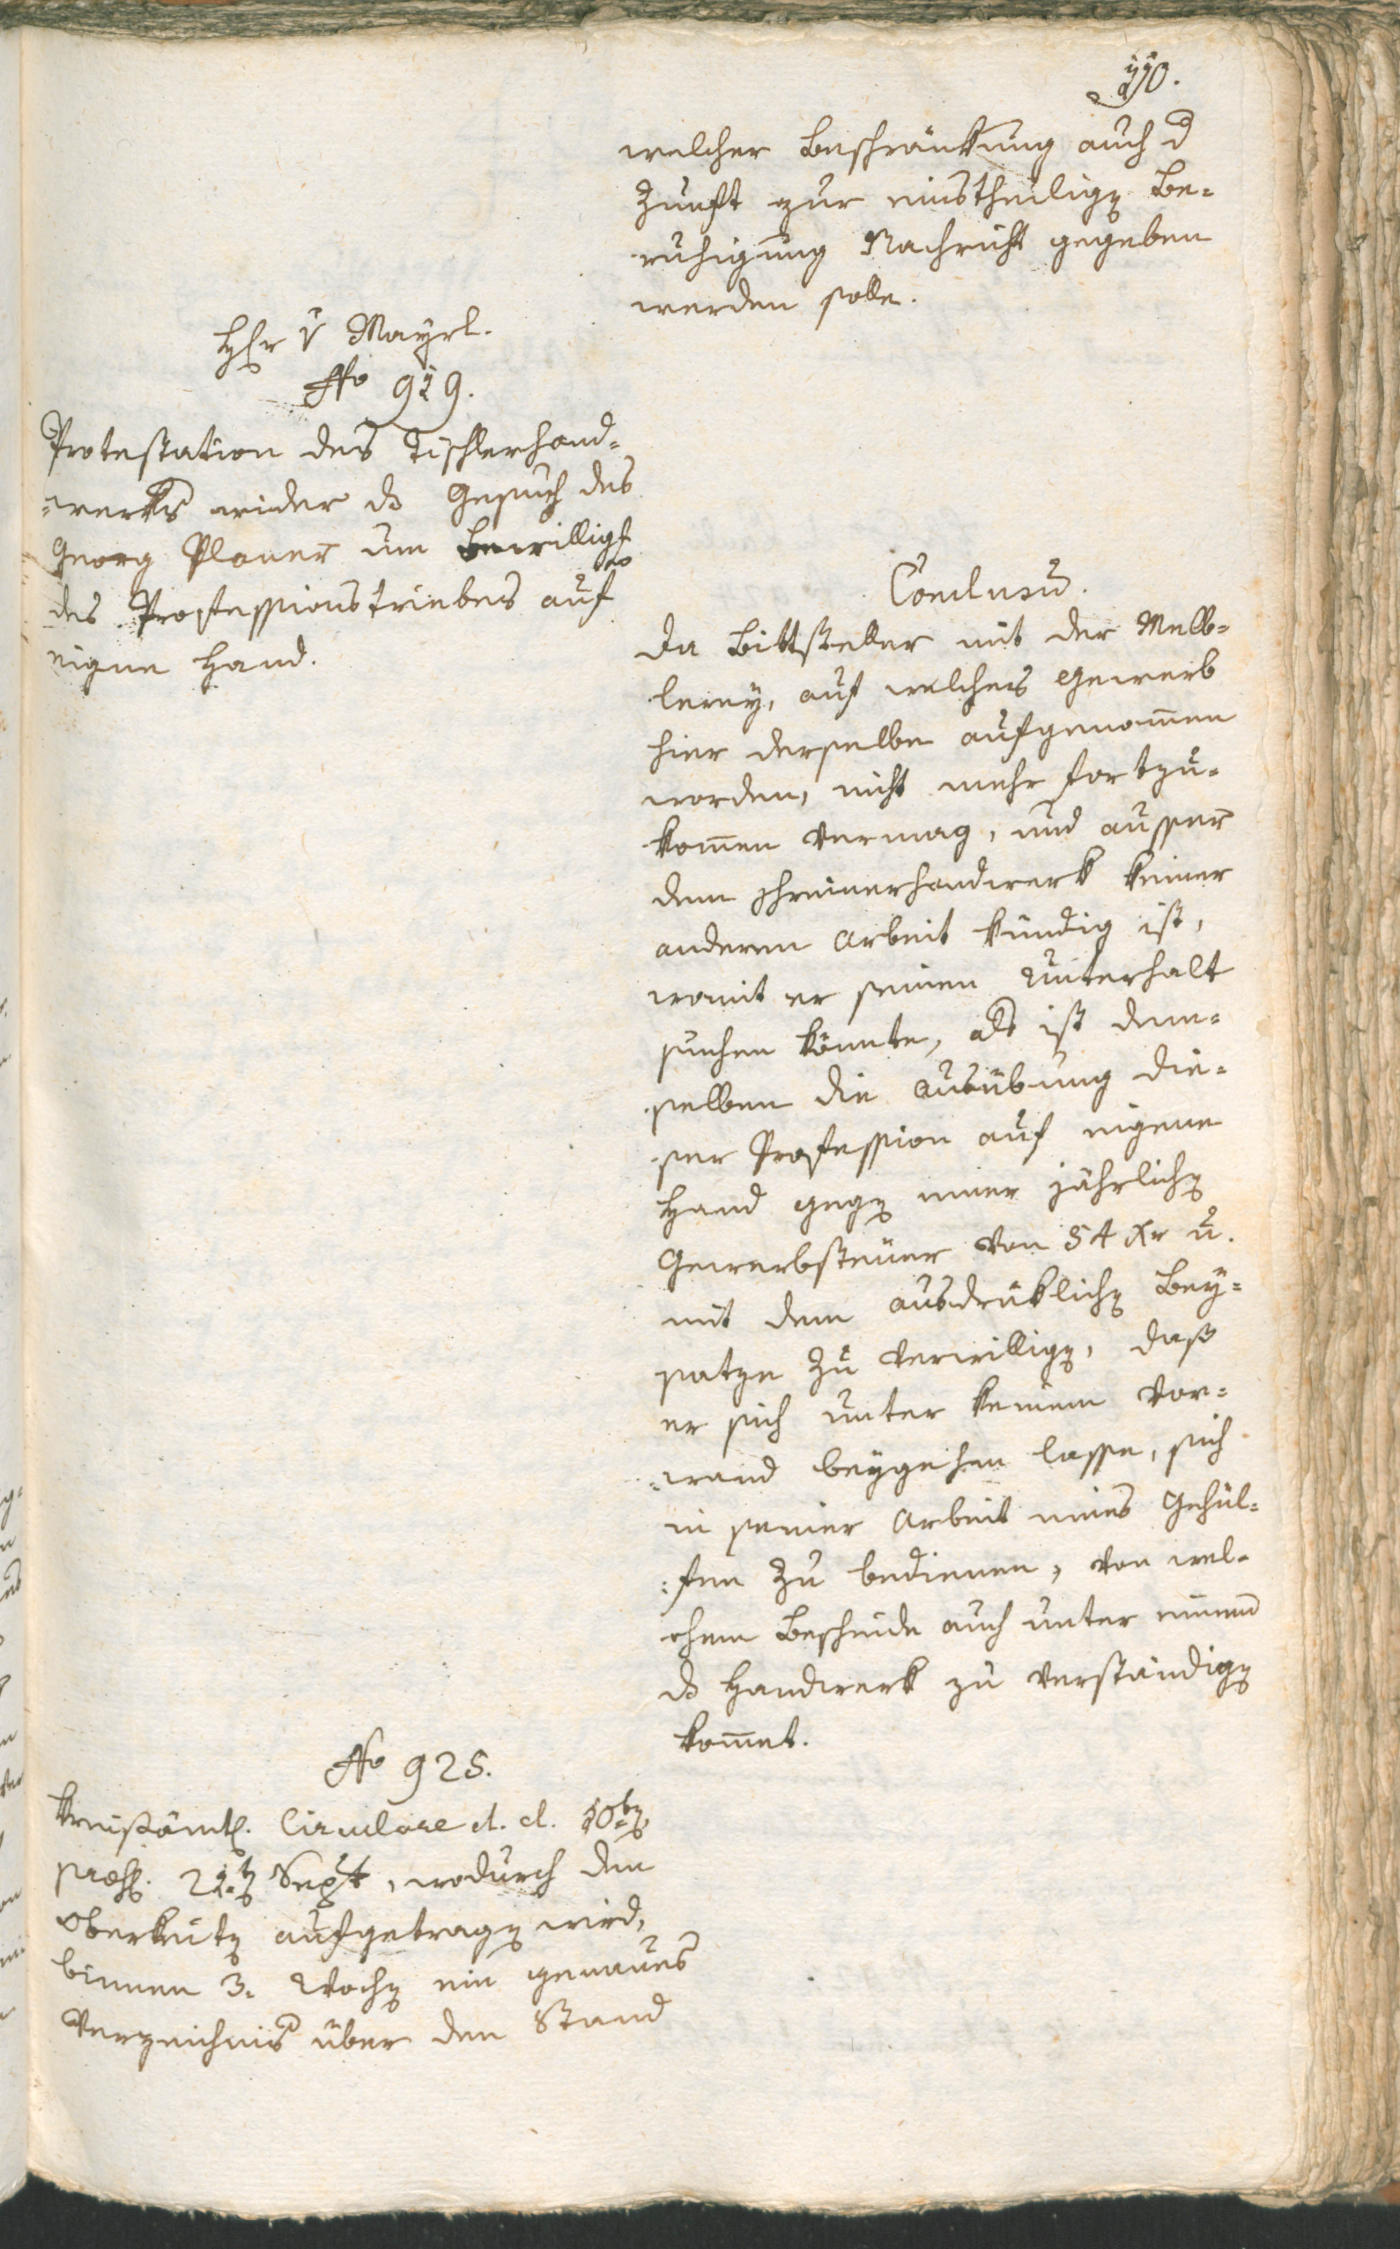 110.
welcher Beschränkung auch d
Zunft zur einstheilig Be-
ruhigung Nachricht gegeben
werden solle.
H v Mayrl.
No 919.
Protestation des Tischlerhand-
-werks wider ds Gesuch des
Georg Planer um Bewillig
des Professionstriebes auf
eigne Hand.
Conclusū.
Da Bittsteller mit der Melb-
lerey, auf welches Gewerb
hier derselbe aufgenom̄en
worden, nicht mehr fortzu-
kom̄en vermag, und ausser
dem Schreinerhandwerk keiner
anderen Arbeit kündig ist,
womit er seinen Unterhalt
suchen könnte, als ist dem-
selben die Ausübung die-
ser Profession auf eigene
Hand geg einer jährlich
Gewerbsteuer von 54 Xr u.
mit dem ausdrüklich Bey-
satze zu verwillig, daß
er sich unter keinem Vor-
-wand beygehen lasse, sich
in seiner Arbeit eines Gehül-
-fen zu bedienen, von wel-
chem Bescheide auch unter einem
ds Handwerk zu verständig
kom̄et.
No 925.
Kreisämtl. Circulare d. d. 10t
præs. 21t Sept, wodurch den
Obrkeit aufgetrag wird,
binnen 3. Woch ein genaues
Verzeichnis über den Stand